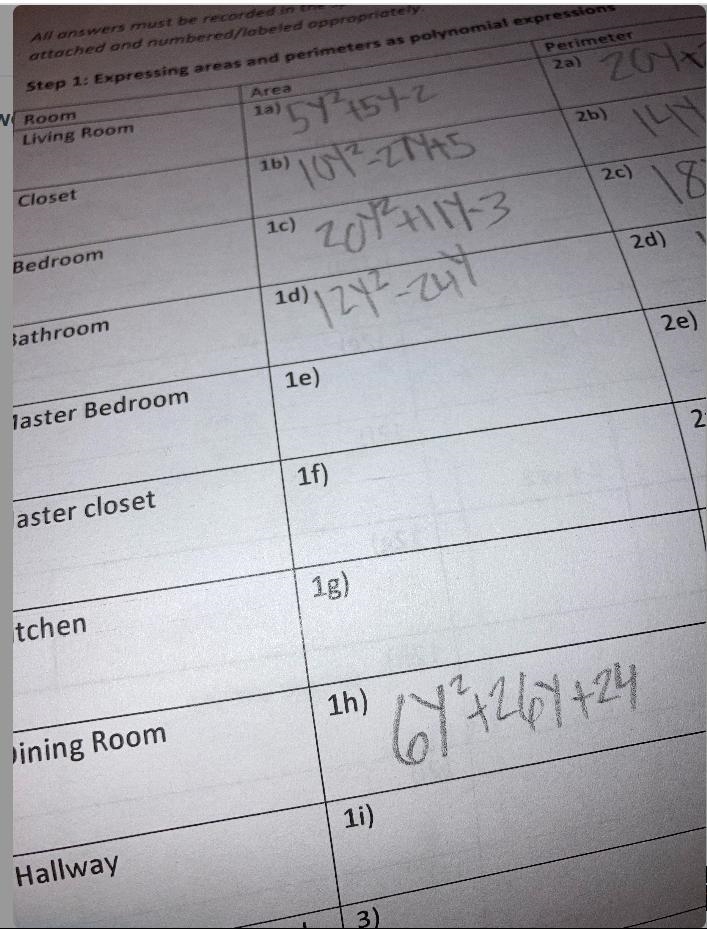 All answers must be recorded in the
attached and numbered/labeled appropriately.
Step 1: Expressing areas and perimeters as polynomial expressions
Room Area Perimeter
Living Room 1a) 5Y²+5Y-2 2a) 20Y+
Closet 1b) 10Y²-27Y+5 2b) 14Y
Bedroom 1c) 20Y²+11Y-3 2c) 18
Bathroom 1d) 12Y²-24Y 2d)
Master Bedroom 1e) 2e)
aster closet 1f) 2
tchen 1g)
Dining Room 1h) 6Y²+26Y+24
Hallway 1i)
3)